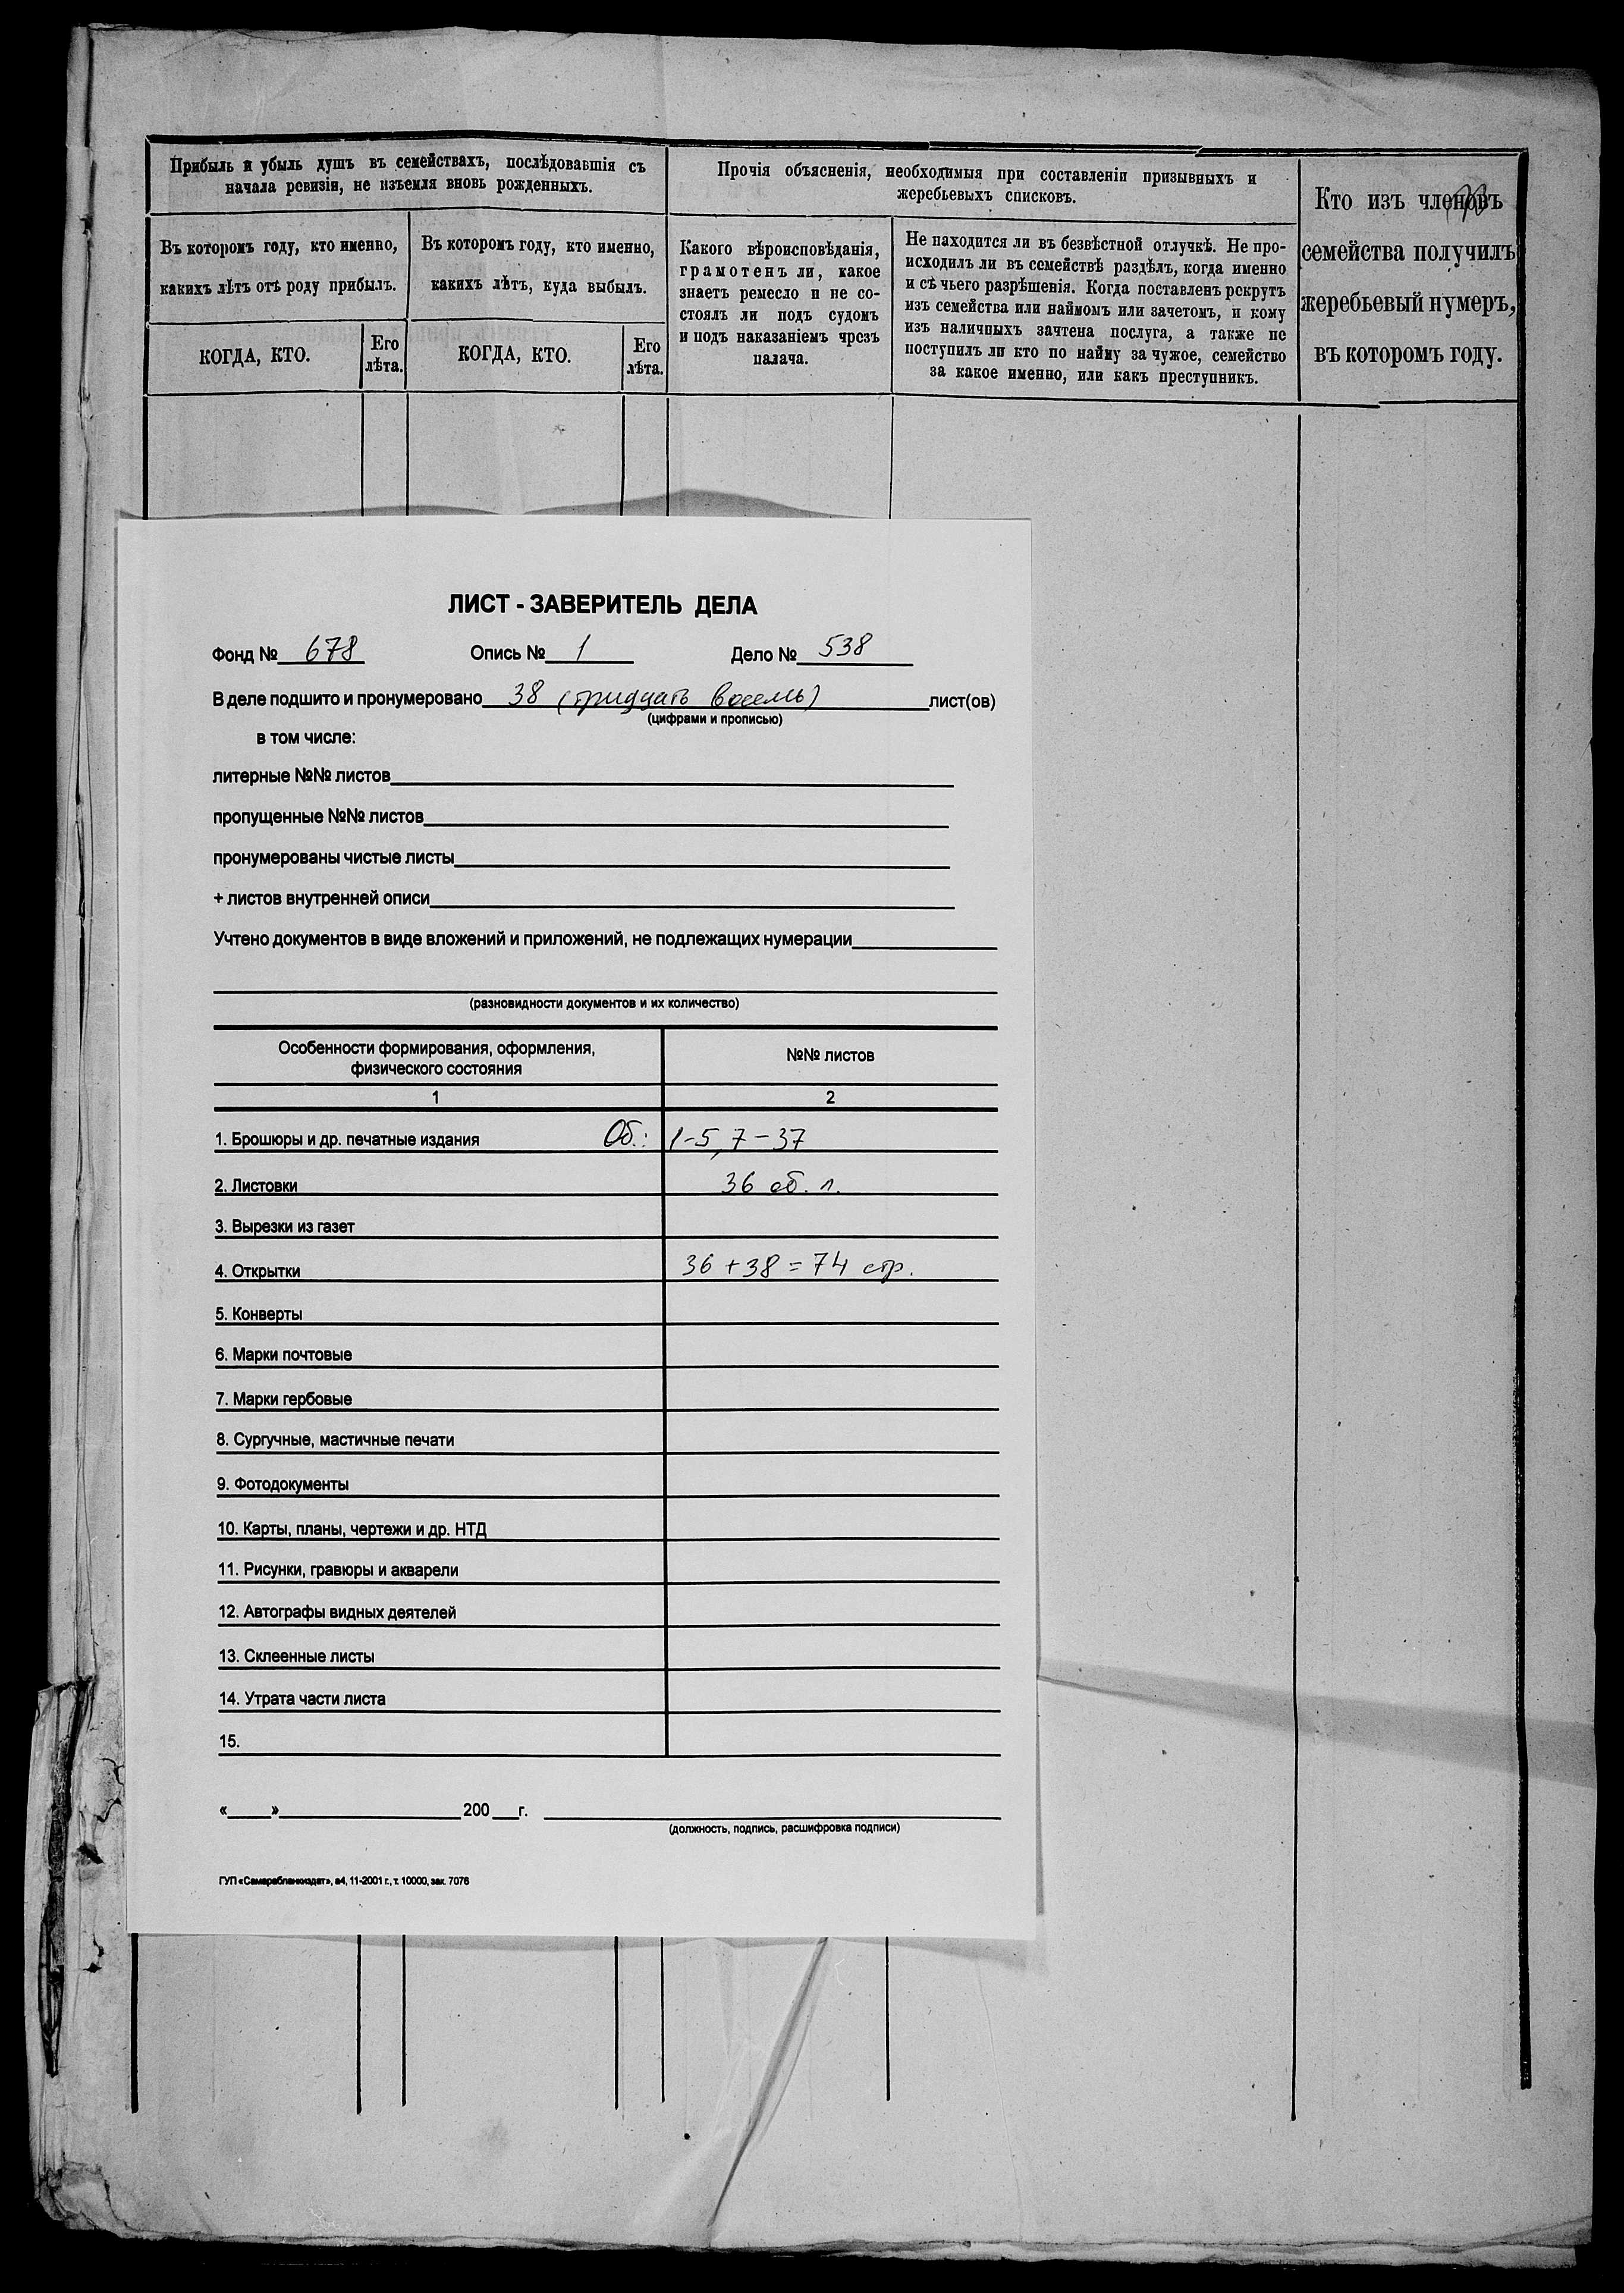 Прибыль и убыль душъ въ семействахъ, послѣдовавшія съ
начала ревизіи, не изъемля вновь рожденныхъ.
Въ которомъ году, кто именно,
какихъ лѣтъ отъ роду прибылъ.
Въ которомъ году, кто именно,
какихъ лѣтъ, куда выбылъ.
КОГДА, КТО.
Его
лѣта.
КОГДА, КТО.
Его
лѣта.
Прочія объясненія, необходимыя при составленіи призывныхъ и
жеребьевыхъ списковъ.
Какого вѣроисповѣданія,
грамотенъ ли, какое
знаетъ ремесло и не со-
стоялъ ли подъ судомъ
и подъ наказаніемъ чрезъ
палача.
Не находится ли въ безвѣстной отлучкѣ. Не про-
исходилъ ли въ семействѣ раздѣлъ, когда именно
и съ чьего разрѣшенія. Когда поставленъ рекрутъ
изъ семейства или наймомъ или зачетомъ, и кому
изъ наличныхъ зачтена послуга, а также не
поступилъ ли кто по найму за чужое, семейство
за какое именно, или какъ преступникъ.
Кто изъ членовъ
семейства получилъ
жеребьевый нумеръ,
въ которомъ году.
ЛИСТ - ЗАВЕРИТЕЛЬ ДЕЛА
Фонд № 678 Опись № 1 Дело № 538
В деле подшито и пронумеровано 38 (тридцать восемь) лист(ов)
(цифрами и прописью)
в том числе:
литерные №№ листов
пропущенные №№ листов
пронумерованы чистые листы
+ листов внутренней описи
Учтено документов в виде вложений и приложений, не подлежащих нумерации
(разновидности документов и их количество)
Особенности формирования, оформления,
физического состояния
№№ листов
1 2
1. Брошюры и др. печатные издания Об.: 1-5, 7-37
2. Листовки 36 об. л.
3. Вырезки из газет
4. Открытки 36 + 38 = 74 стр.
5. Конверты
6. Марки почтовые
7. Марки гербовые
8. Сургучные, мастичные печати
9. Фотодокументы
10. Карты, планы, чертежи и др. НТД
11. Рисунки, гравюры и акварели
12. Автографы видных деятелей
13. Склеенные листы
14. Утрата части листа
15.
«____»____________200__г.
(должность, подпись, расшифровка подписи)
ГУП «Самарабланкиздат», а4, 11-2001 г., т. 10000, зак. 7076